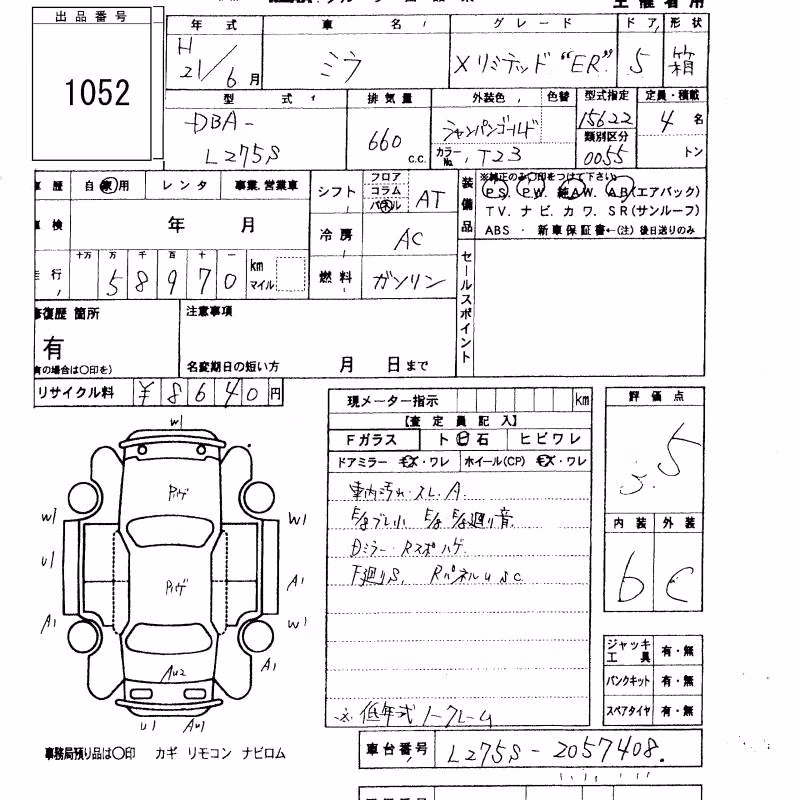 出品番号
1052
年式 車名 グレード ドア 形状
H21/6月 ミラ Xリミテッド “ER” 5 箱
型式 排気量 外装色 色替 型式指定 定員・積載
DBA-L275S 660c.c. シャンパンゴールド 15622 4名
カラーNo. T23 類別区分 0055 トン
車歴 自家用 レンタ 事業.営業車
シフト フロア コラム パネル AT
車検 年 月
冷房 AC
走行 十万 万 千 百 十 一
58970 km マイル
燃料 ガソリン
装備品 ※純正のみ○印をつけて下さい
PS. PW. 純AW. AB(エアバック)
TV. ナビ. カワ. SR(サンルーフ)
ABS ・ 新車保証書←(注) 後日送りのみ
セールスポイント
修復歴 箇所
有
(有の場合は○印を)
注意事項
名変期日の短い方 月 日まで
リサイクル料 ¥8640円
現メーター指示 km
【査定員記入】
Fガラス ト ビ 石 ヒビワレ
ドアミラー キズ・ワレ ホイール(CP) キズ・ワレ
車内汚れ・スレ.A.
E/gブレ小 E/g E/g廻り音
Dミラー・Rスポハゲ
F廻りS, RパネルUSC
※低年式ノークレーム
評価点
3.5
内装 外装
b C
ジャッキ 工具 有・無
パンクキット 有・無
スペアタイヤ 有・無
W1
W1
U1
A1
W1
A1
W1
A1
A42
U1
事務局預り品は○印 カギ リモコン ナビロム
車台番号 L275S-2057408.